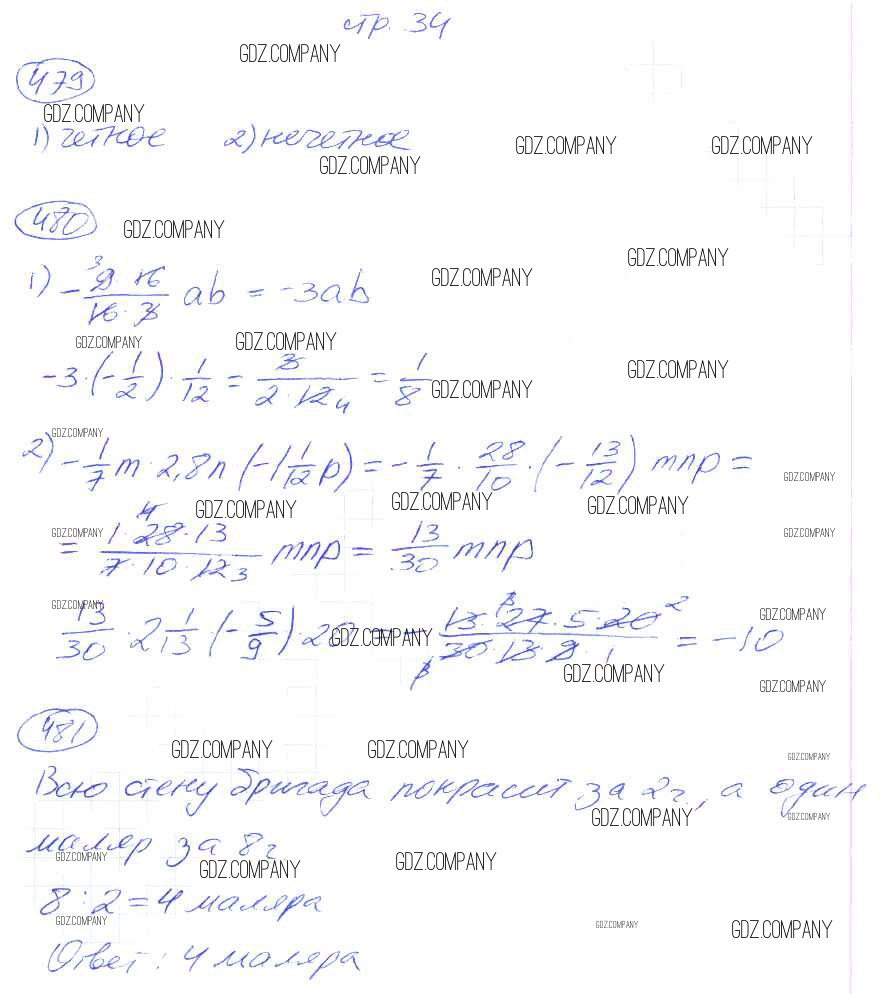 стр. 34
GDZ.COMPANY
479
GDZ.COMPANY
1) четное 2) нечетное
GDZ.COMPANY GDZ.COMPANY
GDZ.COMPANY
480
GDZ.COMPANY
GDZ.COMPANY
GDZ.COMPANY
1) -(9·16)/(16·3) ab = -3ab
3
GDZ.COMPANY GDZ.COMPANY
GDZ.COMPANY
-3·(-1/2)·1/12 = 3/(2·12 4) = 1/8
GDZ.COMPANY
GDZ.COMPANY
2) -1/7 m·2,8n (-1 1/12 p) = -1/7 · 28/10 · (-13/12) mnp =
GDZ.COMPANY
GDZ.COMPANY GDZ.COMPANY GDZ.COMPANY
GDZ.COMPANY GDZ.COMPANY
4
= (1·28·13)/(7·10·12 3) mnp = 13/30 mnp
GDZ.COMPANY GDZ.COMPANY
13/30 · 2 1/13 (-5/9)·20 = -(13·27·5·20 2)/(30·13·9·1) = -10
3
GDZ.COMPANY
GDZ.COMPANY
GDZ.COMPANY
481
GDZ.COMPANY GDZ.COMPANY
GDZ.COMPANY
Всю стену бригада покрасит за 2ч., а один
GDZ.COMPANY GDZ.COMPANY
маляр за 8ч
GDZ.COMPANY GDZ.COMPANY GDZ.COMPANY
8 : 2 = 4 маляра
GDZ.COMPANY GDZ.COMPANY GDZ.COMPANY
Ответ: 4 маляра